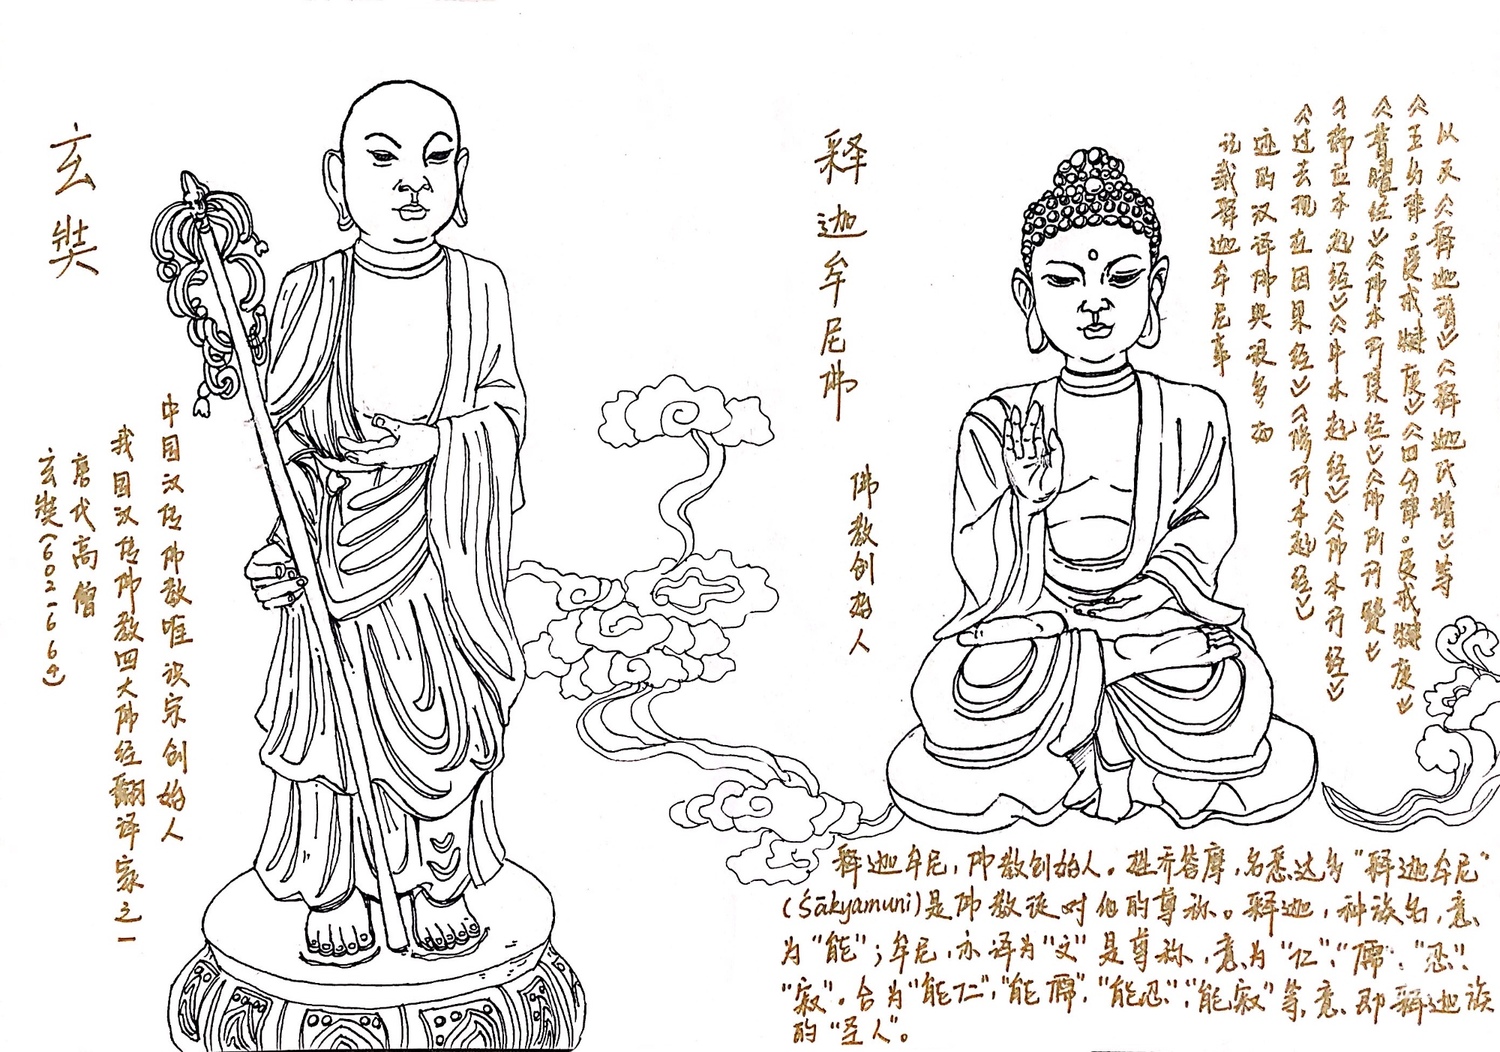 玄奘
玄奘(602-664)
唐代高僧
我国汉传佛教四大佛经翻译家之一
中国汉传佛教唯识宗创始人
释迦牟尼佛
佛教创始人
记载释迦牟尼事
迹的汉译佛典很多 如
《过去现在因果经》《修行本起经》
《瑞应本起经》《中本起经》《佛本行经》
《普曜经》《佛本行集经》《佛所行赞》
《五分律·受戒犍度》《四分律·受戒犍度》
以及《释迦谱》《释迦氏谱》等
释迦牟尼,佛教创始人。姓乔答摩,名悉达多"释迦牟尼"
(Śākyamuni)是佛教徒对他的尊称。释迦,种族名,意
为"能";牟尼,亦译为"文"是尊称,意为"仁","儒","忍",
"寂"。合为"能仁","能儒","能忍","能寂"等,意即释迦族
的"圣人"。